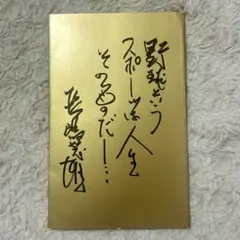 野球という
スポーツは人生
そのものだ…
長嶋茂雄